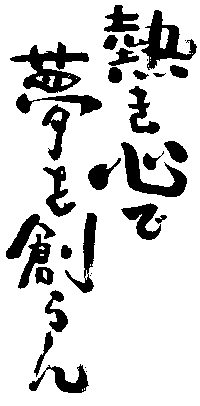 熱き心で
夢を創らん